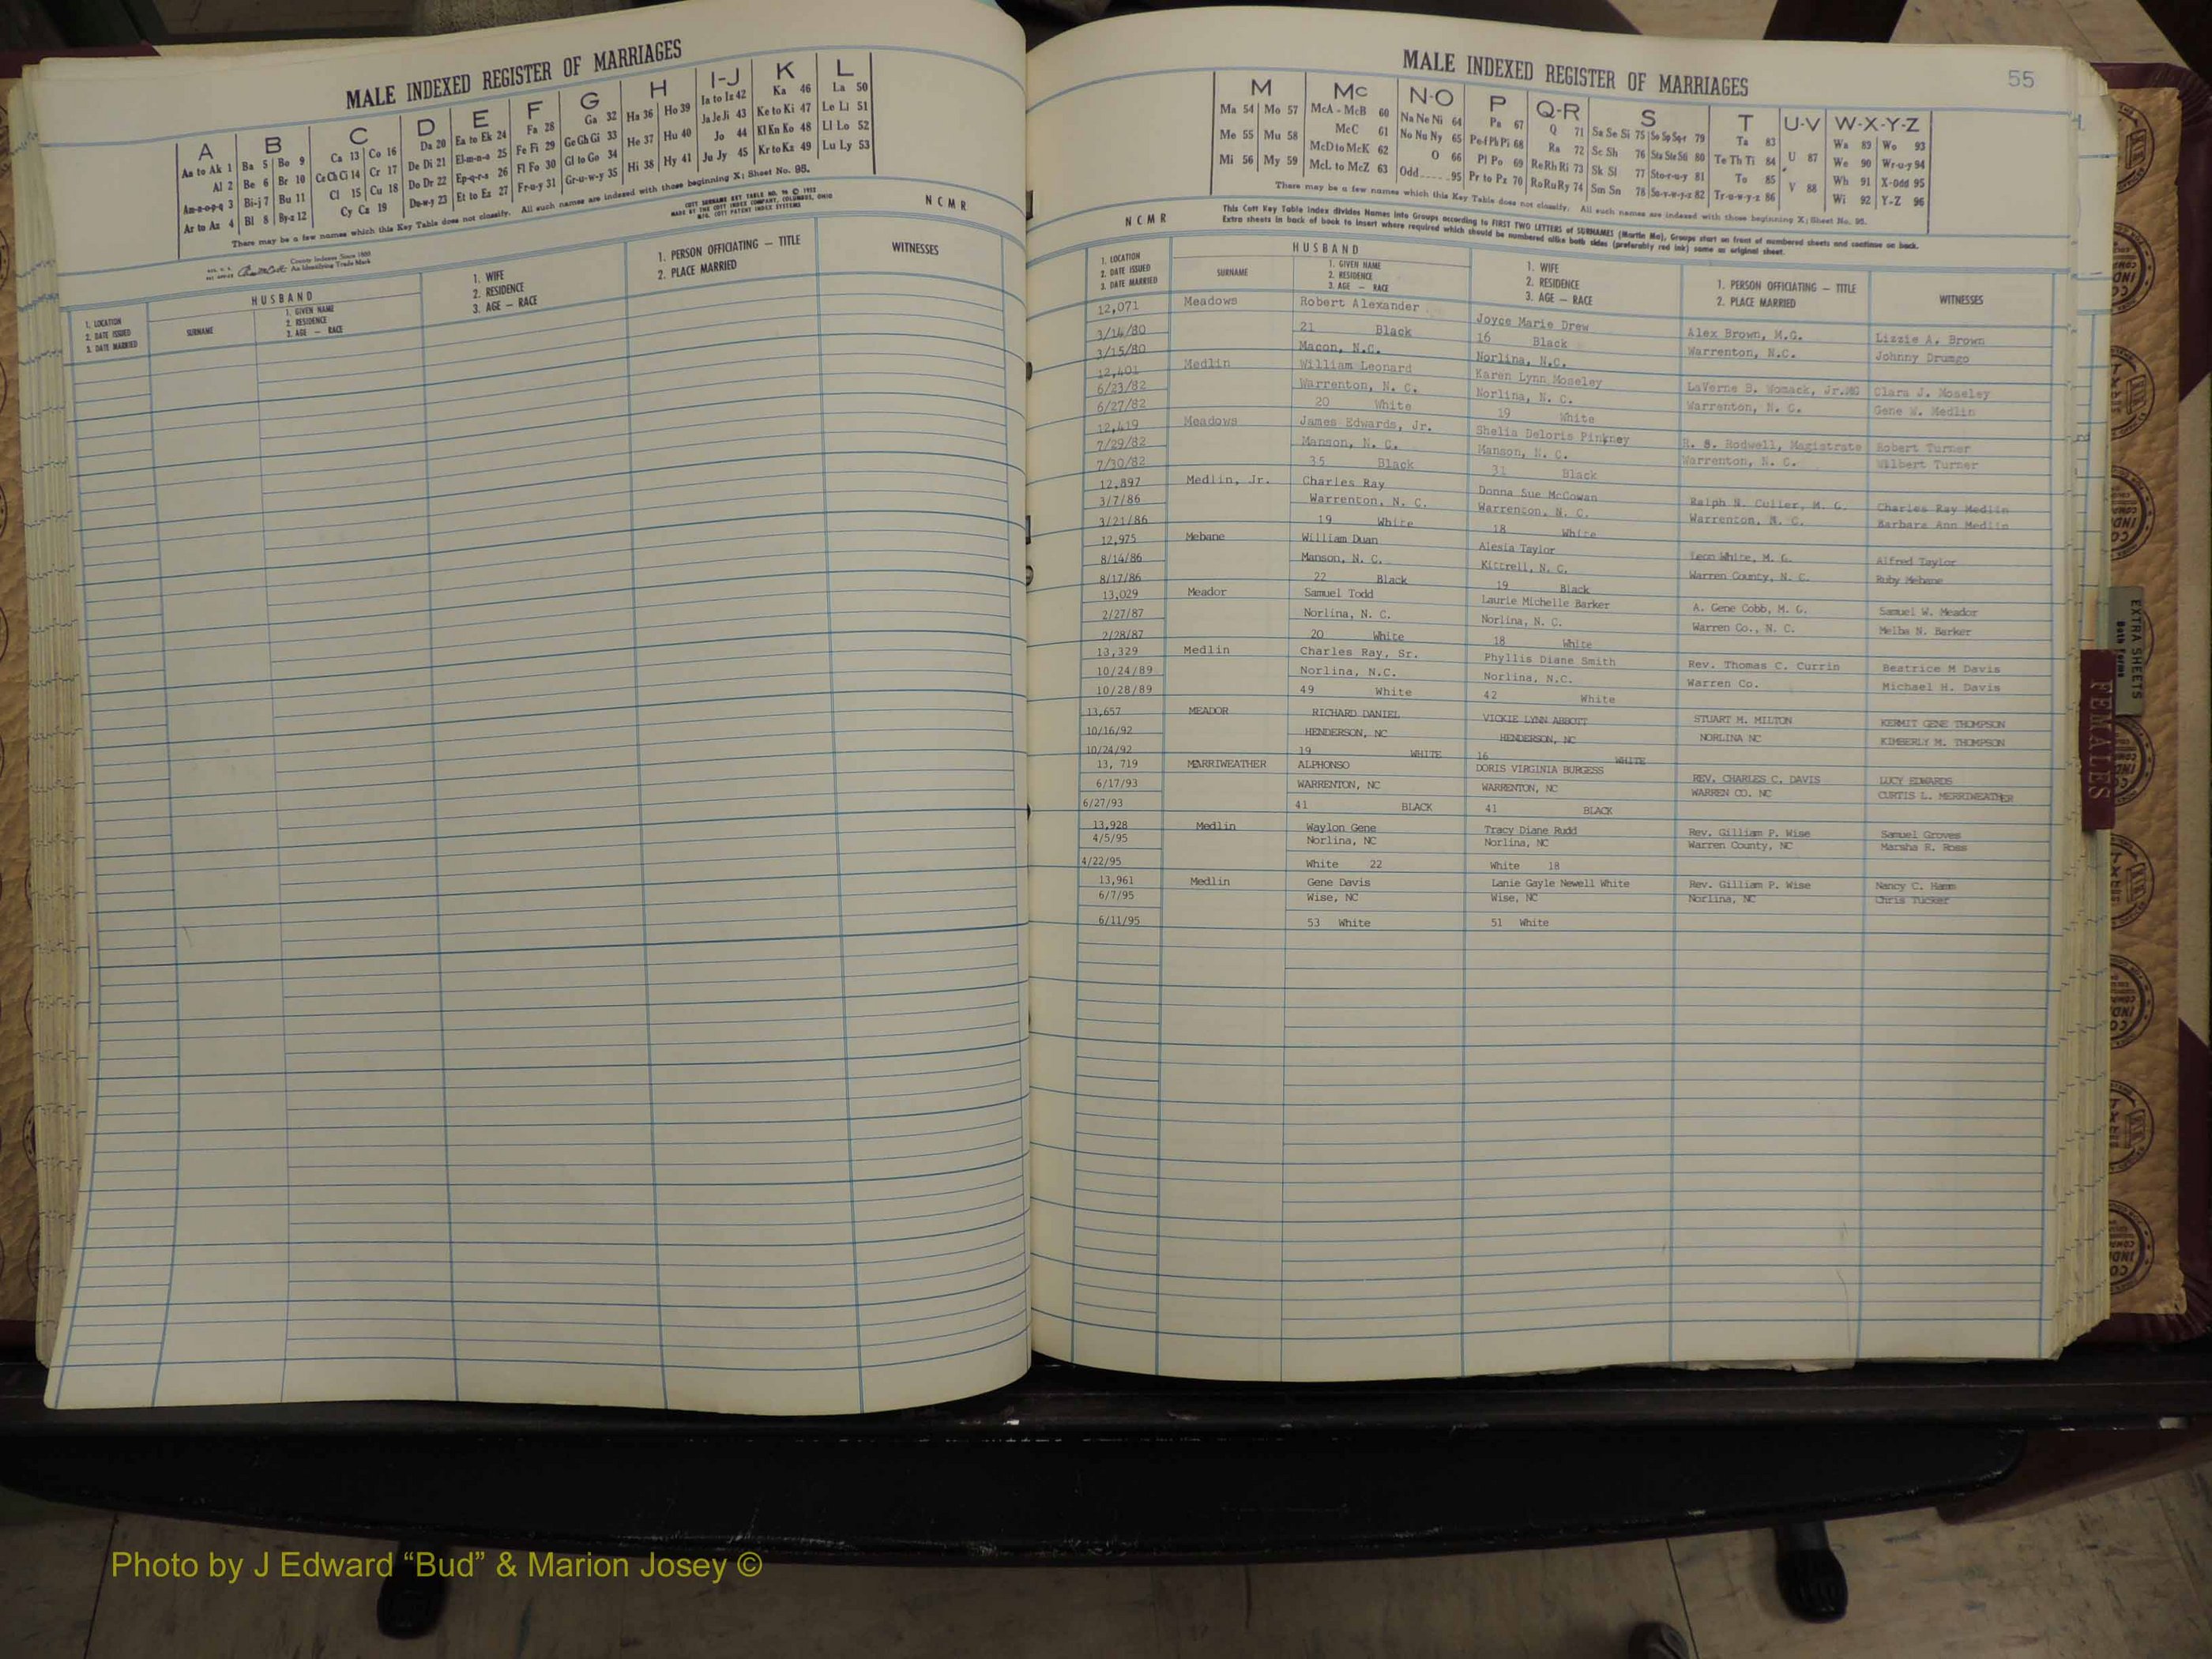 MALE INDEXED REGISTER OF MARRIAGES
A B C D E F G H I-J K L
Aa to Ak 1 Ba 5 Bo 9 Ca 13 Co 16 Da 20 Ea to Ek 24 Fa 28 Ga 32 Ha 36 Ho 39 Ia to Iz 42 Ka 46 La 50
Al 2 Be 6 Br 10 Ce Ch Ci 14 Cr 17 De Di 21 El-m-n-o 25 Fe Fi 29 Ge Gh Gi 33 He 37 Hu 40 Ja Je Ji 43 Ke to Ki 47 Le Li 51
Am-n-o-p-q 3 Bi-j 7 Bu 11 Cl 15 Cu 18 Do Dr 22 Ep-q-r-s 26 Fl Fo 30 Gl to Go 34 Hi 38 Hy 41 Jo 44 Kl Kn Ko 48 Ll Lo 52
Ar to Az 4 Bl 8 By-z 12 Cy Cz 19 Du-w-y 23 Et to Ez 27 Fr-u-y 31 Gr-u-w-y 35 Ju Jy 45 Kr to Kz 49 Lu Ly 53
There may be a few names which this Key Table does not classify. All such names are indexed with those beginning X; Sheet No. 95.
COTT SURNAME KEY TABLE NO. 96 © 1952
MADE BY THE COTT INDEX COMPANY, COLUMBUS, OHIO
MFG. COTT PATENT INDEX SYSTEMS
NCMR
County Indexes Since 1888
An Identifying Trade Mark
1. LOCATION
2. DATE ISSUED
3. DATE MARRIED
HUSBAND
SURNAME
1. GIVEN NAME
2. RESIDENCE
3. AGE — RACE
1. WIFE
2. RESIDENCE
3. AGE — RACE
1. PERSON OFFICIATING — TITLE
2. PLACE MARRIED
WITNESSES
MALE INDEXED REGISTER OF MARRIAGES
55
M Mc N-O P Q-R S T U-V W-X-Y-Z
Ma 54 Mo 57 McA - McB 60 Na Ne Ni 64 Pa 67 Q 71 Sa Se Si 75 So Sp Sq-r 79 Ta 83 U 87 Wa 89 Wo 93
Me 55 Mu 58 McC 61 No Nu Ny 65 Pe Pf Ph Pi 68 Ra 72 Sc Sh 76 Sta Ste Sti 80 Te Th Ti 84 V 88 We 90 Wr-u-y 94
Mi 56 My 59 McD to McK 62 O 66 Pl Po 69 Re Rh Ri 73 Sk Sl 77 Sto-r-u-y 81 To 85 Wh 91 X-Odd 95
McL to McZ 63 Odd 95 Pr to Pz 70 Ro Ru Ry 74 Sm Sn 78 Su-v-w-y-z 82 Tr-u-w-y-z 86 Wi 92 Y-Z 96
There may be a few names which this Key Table does not classify. All such names are indexed with those beginning X; Sheet No. 95.
NCMR
This Cott Key Table Index divides Names into Groups according to FIRST TWO LETTERS of SURNAMES (Martin Ma), Groups start on front of numbered sheets and continue on back.
Extra sheets in back of book to insert where required which should be numbered alike both sides (preferably red ink) same as original sheet.
1. LOCATION
2. DATE ISSUED
3. DATE MARRIED
HUSBAND
SURNAME
1. GIVEN NAME
2. RESIDENCE
3. AGE — RACE
1. WIFE
2. RESIDENCE
3. AGE — RACE
1. PERSON OFFICIATING — TITLE
2. PLACE MARRIED
WITNESSES
12,071 Meadows Robert Alexander Joyce Marie Drew Alex Brown, M.G. Lizzie A. Brown
3/14/80 21 Black 16 Black Warrenton, N.C. Johnny Drumgo
3/15/80 Macon, N.C. Norlina, N.C.
12,401 Medlin William Leonard Karen Lynn Moseley LaVerne S. Womack, Jr.MG Clara J. Moseley
6/23/82 Warrenton, N. C. Norlina, N. C. Warrenton, N. C. Gene W. Medlin
6/27/82 20 White 19 White
12,419 Meadows James Edwards, Jr. Shelia Deloris Pinkney R. S. Rodwell, Magistrate Robert Turner
7/29/82 Manson, N. C. Manson, N. C. Warrenton, N. C. Wilbert Turner
7/30/82 35 Black 31 Black
12,897 Medlin, Jr. Charles Ray Donna Sue McCowan Ralph N. Culler, M. G. Charles Ray Medlin
3/7/86 Warrenton, N. C. Warrenton, N. C. Warrenton, N. C. Barbara Ann Medlin
3/21/86 19 White 18 White
12,975 Mebane William Duan Alesia Taylor Leon White, M. G. Alfred Taylor
8/14/86 Manson, N. C. Kittrell, N. C. Warren County, N. C. Ruby Mebane
8/17/86 22 Black 19 Black
13,029 Meador Samuel Todd Laurie Michelle Barker A. Gene Cobb, M. G. Samuel W. Meador
2/27/87 Norlina, N. C. Norlina, N. C. Warren Co., N. C. Melba N. Barker
2/28/87 20 White 18 White
13,329 Medlin Charles Ray, Sr. Phyllis Diane Smith Rev. Thomas C. Currin Beatrice M Davis
10/24/89 Norlina, N.C. Norlina, N.C. Warren Co. Michael H. Davis
10/28/89 49 White 42 White
13,657 MEADOR RICHARD DANIEL VICKIE LYNN ABBOTT STUART M. MILTON KERMIT GENE THOMPSON
10/16/92 HENDERSON, NC HENDERSON, NC NORLINA NC KIMBERLY M. THOMPSON
10/24/92 19 WHITE 16 WHITE
13, 719 MERRIWEATHER ALPHONSO DORIS VIRGINIA BURGESS REV. CHARLES C. DAVIS LUCY EDWARDS
6/17/93 WARRENTON, NC WARRENTON, NC WARREN CO. NC CURTIS L. MERRIWEATHER
6/27/93 41 BLACK 41 BLACK
13,928 Medlin Waylon Gene Tracy Diane Rudd Rev. Gilliam P. Wise Samuel Groves
4/5/95 Norlina, NC Norlina, NC Warren County, NC Marsha R. Ross
4/22/95 White 22 White 18
13,961 Medlin Gene Davis Lanie Gayle Newell White Rev. Gilliam P. Wise Nancy C. Hamm
6/7/95 Wise, NC Wise, NC Norlina, NC Chris Tucker
6/11/95 53 White 51 White
EXTRA SHEETS
Both Forms
FEMALES
Photo by J Edward “Bud” & Marion Josey ©